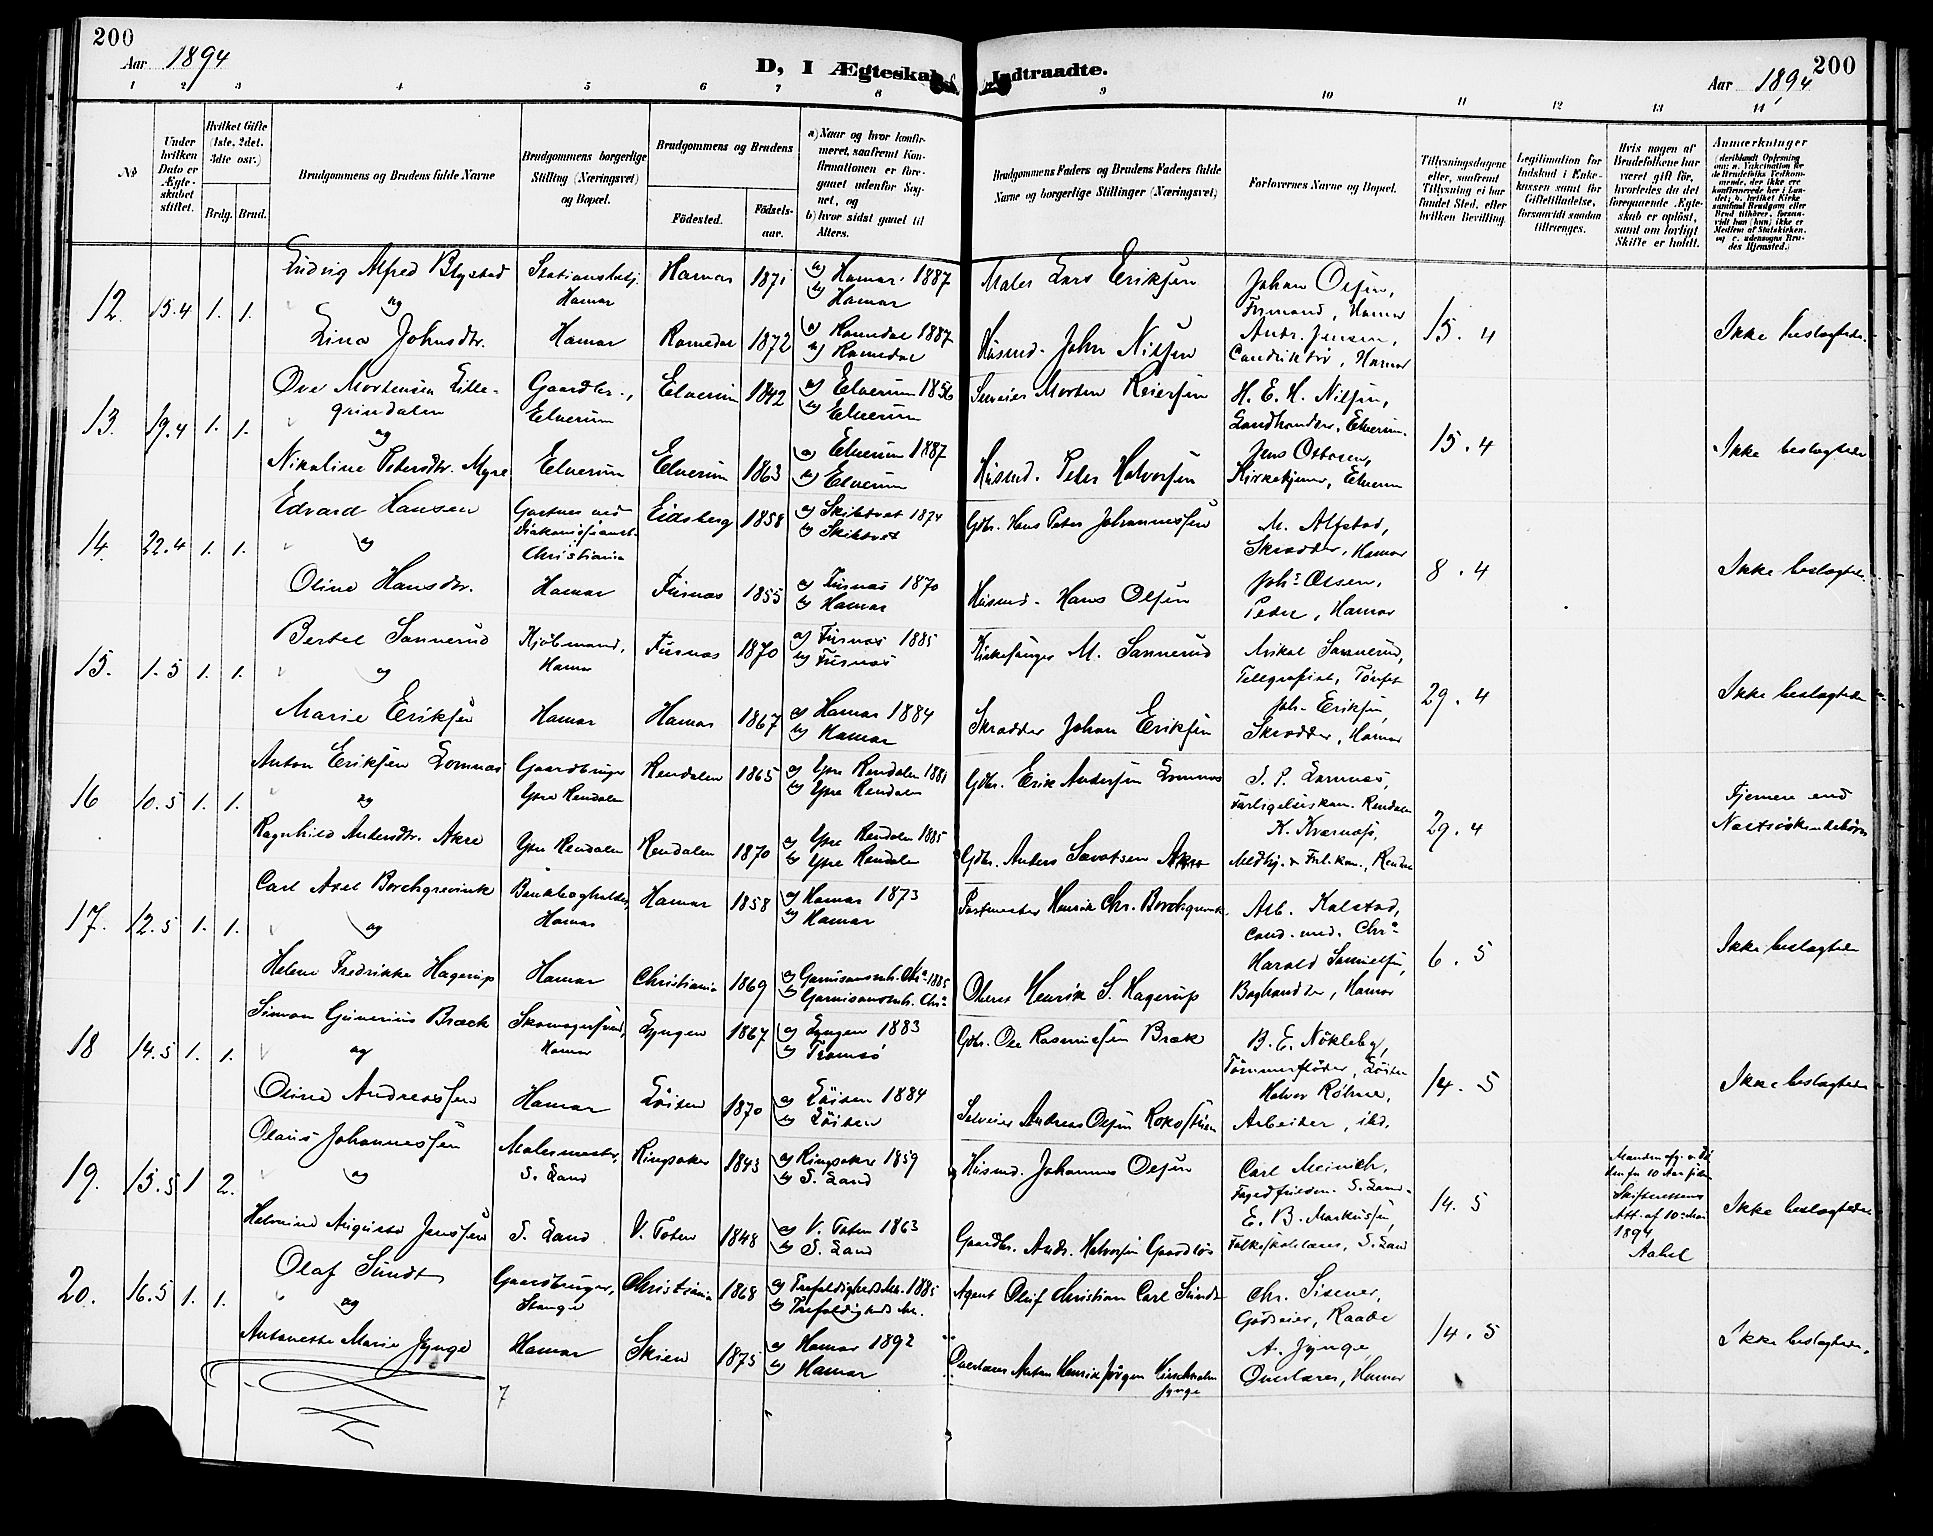 200
Aar 1894
D, I Ægteskab Indtraadte.
Aar 1894
200
1 2 3 4 5 6 7 8 9 10 11 12 13 14
No
Under hvilken Dato er Ægteskabet stiftet.
Hvilket Gifte (1ste, 2det, 3dte osv.)
Brdg. Brud.
Brudgommens og Brudens fulde Navne
Brudgommens borgerlige Stilling (Næringsvei) og Bopæl.
Brudgommens og Brudens
Födested.
Födselsaar.
a) Naar og hvor konfirmeret, saafremt Konfirmationen er foregaaet udenfor Sognet, og
b) hvor sidst gaaet til Alters.
Brudgommens Faders og Brudens Faders fulde Navne og borgerlige Stillinger (Næringsvei)
Forlovernes Navne og Bopæl.
Tillysningsdagene eller, saafremt Tillysning ei har fundet Sted, efter hvilken Bevilling.
Legitimation for Indskud i Enkekassen samt for Giftetilladelse, forsaavidt saadan tiltrænges.
Hvis nogen af Brudefolkene har været gift för, hvorledes da det foregaaende Ægteskab er oplöst, samt om lovligt Skifte er holdt.
Anmærkninger
(deriblandt Oplysning om: a. Vakcination for de Brudefolks Vedkommende, der ikke ere konfirmerede her i Landet; b. hvilket Kirkesamfund Brudgom eller Brud tilhörer, forsaavidt han (hun) ikke er Medlem af Statskirken, og c. udensogns Brudes Hjemsted.)
12. 15.4 1. 1.
Ludvig Alfred Blystad Stationsbetj. Hamar Hamar 1871 a) Hamar 1887 b) Hamar Maler Lars Eriksen
og
Lina Johnsdtr. Hamar Romedal 1872 a) Romedal 1887 b) Romedal Husmd. John Nilsen
Johan Olsen, Formand, Hamar
Andr. Jensen, Conduktör, Hamar
15.4 Ikke beslægtede.
13. 19.4 1. 1.
Ove Mortensen Lillegrindalen Gaardbr., Elverum Elverum 1842 a) Elverum 1856 b) Elverum Selveier Morten Reiersen
og
Nikoline Petersdtr. Myre Elverum Elverum 1863 a) Elverum 1887 b) Elverum Husmd. Peter Halvorsen
H. E. H. Nilsen, Landhandler, Elverum.
Jens Ottosen, Kirketjener, Elverum
15.4 Ikke beslægtede
14. 22.4 1. 1.
Edvard Hansen Gartner ved Diakonisseanst. Christiania Eidsberg 1858 a) Skibtvet 1874 b) Skibtvet Gdbr. Hans Peter Johannessen
og
Oline Hansdtr. Hamar Furnæs 1855 a) Furnæs 1870 b) Hamar Husmd. Hans Olsen
M. Alfstad, Skrædder, Hamar
Johs. Olsen, Hamar
8.4 Ikke beslægtede
15. 1.5 1. 1.
Bertel Sannerud Kjöbmand, Hamar Furnæs 1870 a) Furnæs 1885 b) Furnæs Kirkesanger M. Sannerud
og
Marie Eriksen Hamar Hamar 1867 a) Hamar 1884 b) Hamar Skrædder Johan Eriksen
Mikal Sannerud, Telegrafist,
Joh. Eriksen, Skrædder, Hamar
29.4 Ikke beslægtede
16 10.5 1. 1.
Anton Eriksen Lomnæs Gaardbruger Ytre Rendalen Rendalen 1865 a) Ytre Rendalen 1881 b) Ytre Rendalen Gdbr. Erik Andersen Lomnæs
og
Ragnhild Andersdtr. Akre Ytre Rendalen Rendalen 1870 a) Ytre Rendalen 1885 b) Ytre Rendalen Gdbr. Anders Akre
Lomnæs, Forligelseskom. Rendalen
K. Kværnæs,
29.4 Fjernere end Næstsöskendebörn
17. 12.5 1. 1.
Carl Axel Borchgrevink Bankbogholder, Hamar Hamar 1858 a) Hamar 1873 b) Hamar Postmester Henrik Chr. Borchgrevink
og
Helene Fredrikke Hagerup Hamar Christiania 1869 a) Garnisonsmh. Chra. 1885 b) Garnisonsmh. Chra. Oberst Henrik S. Hagerup
Alb. Kalstad, Cand. med. Chra.
Harald Samuelsen, Boghandler, Hamar
6.5 Ikke beslægtede
18 14.5 1. 1.
Simon Gunerius Bræck Skomagersvend, Hamar Lyngen 1867 a) Lyngen 1883 b) Tromsö Gdbr. Ole Rasmussen Bræk
og
Oline Andreassen Hamar Löiten 1870 a) Löiten 1884 b) Löiten Selveier Andreas Olsen
B. E. Nökleby, Tömmerflöder, Löiten
Halvor Röhne, Arbeider, ibd.
14.5 Ikke beslægtede
19. 15.5 1 2.
Olaus Johannessen Malermester, S. Land Ringsaker 1843 a) Ringsaker 1859 b) S. Land Husmd. Johannes Olsen
og
Helmine Augusta Jenssen S. Land V. Toten 1848 a) V. Toten 1863 b) S. Land Gaardbr. Andr. Halvorsen Gaardlös
Carl Meinich, S. Land
E. B. Markussen, Folkeskolelærer, S. Land
14.5
Skifterettens Att. af 10de Mai 1894 Aabel
Ikke beslægtede
20. 16.5 1. 1.
Olaf Sundt Gaardbruger, Stange Christiania 1868 a) Trefoldighedskr. 1885 b) Trefoldigheds kr. Agent Oluf Christian Carl Sundt
og
Antonette Marie Jynge Hamar Skien 1875 a) Hamar 1892 b) Hamar Overlærer Anton Henrik Jörgen Jynge
Chr. Sisener, Godseier, Raade
A. Jynge, Overlærer, Hamar
14.5 Ikke beslægtede.
7